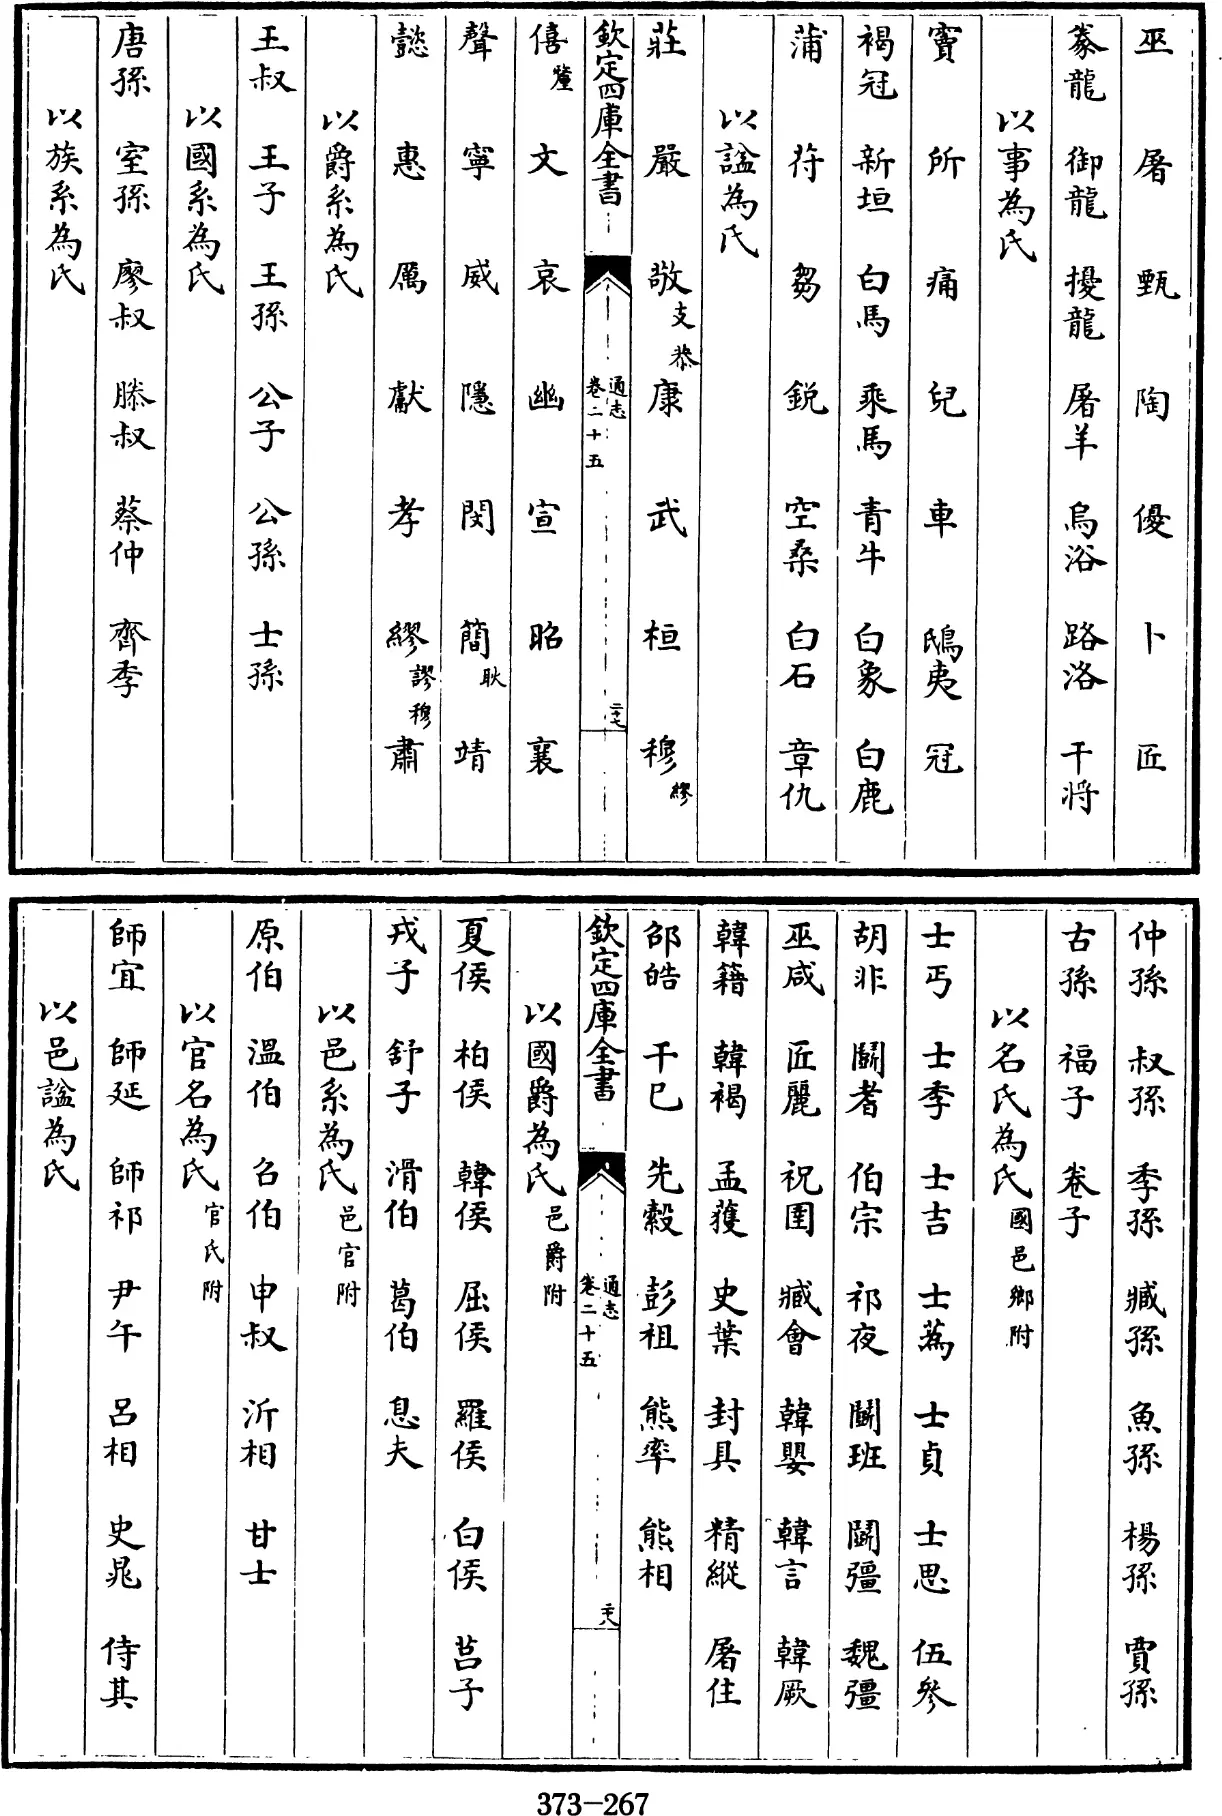 巫 屠 甄 陶 優 卜 匠
豢龍 御龍 擾龍 屠羊 烏浴 路洛 干將
以事為氏
竇 所 痛 兒 車 鴟夷 冠
褐冠 新垣 白馬 乘馬 青牛 白象 白鹿
蒲 苻 芻 銳 空桑 白石 章仇
以諡為氏
莊 嚴 敬 支 恭 康 武 桓 穆 繆
欽定四庫全書 通志 卷二十五 二十七
僖 釐 文 哀 幽 宣 昭 襄
聲 寧 威 隱 閔 簡 耿 靖
懿 惠 厲 獻 孝 繆 謬 穆 肅
以爵系為氏
王叔 王子 王孫 公子 公孫 士孫
以國系為氏
唐孫 室孫 廖叔 滕叔 蔡仲 齊季
以族系為氏
仲孫 叔孫 季孫 臧孫 魚孫 楊孫 賈孫
古孫 福子 卷子
以名氏為氏 國邑鄉附
士丐 士季 士吉 士蒍 士貞 士思 伍參
胡非 鬭耆 伯宗 祁夜 鬭班 鬭彊 魏彊
巫咸 匠麗 祝圉 臧會 韓嬰 韓言 韓厥
韓籍 韓褐 孟獲 史葉 封具 精縱 屠住
邵皓 干已 先縠 彭祖 熊率 熊相
欽定四庫全書 通志 卷二十五 二十八
以國爵為氏 邑爵附
夏侯 柏侯 韓侯 屈侯 羅侯 白侯 莒子
戎子 舒子 滑伯 葛伯 息夫
以邑系為氏 邑官附
原伯 溫伯 召伯 申叔 沂相 甘士
以官名為氏 官氏附
師宜 師延 師祁 尹午 呂相 史晁 侍其
以邑諡為氏
373-267